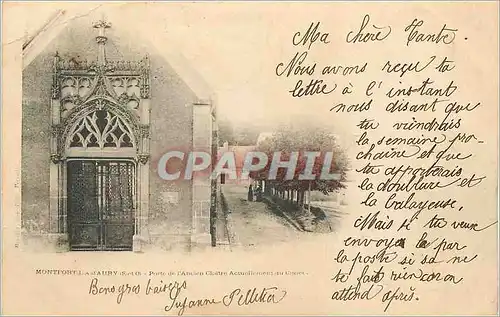 Ma chère Tante.
Nous avons reçu ta
lettre à l'instant
nous disant que
tu viendrais
la semaine pro-
chaine et que
tu apporterais
la doublure et
la balayeuse,
Mais si tu veux
envoyer le par
la poste si sa ne
te fait rien car on
attend après.
MONTFORT-L'AMAURY (S.-et-O.) - Porte de l'Ancien Cloître Actuellement au Cimetière
Bons gros baisers
Suzanne Pelletier
CPARAMA.COM